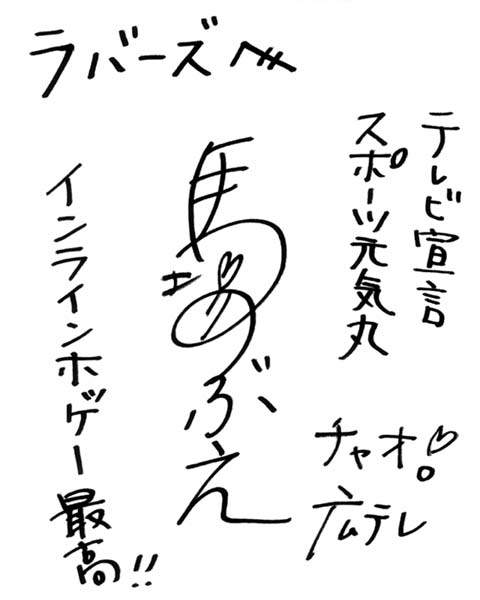 ラバーズへ
テレビ宣言
スポーツ元気丸
チャオ!
広テレ
馬場のぶえ
インラインホゲー最高!!